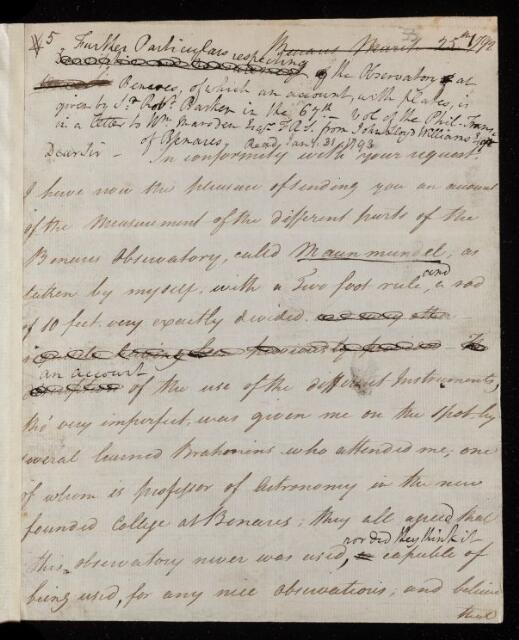 5 Further Particulars respecting Benares March 25th 1792
of the Observatory at
Benares, of which an account, with plates, is
given by Sr. Robt. Barker in the 67th Vol. of the Phil. Trans.
in a letter to Wm. Marsden Esqr. F.R.S. from John Lloyd Williams Esqr.
of Benares Read Jany. 31. 1793
Dear Sir – In conformity with your request
I have now the pleasure of sending you an account
of the Measurement of the different parts of the
Benares Observatory, called Maunmundel, as
taken by myself, with a Two foot rule, and a rod
of 10 feet, very exactly divided.
an account
of the use of the different Instruments,
tho' very imperfect, was given me on the spot by
several learned Brahmins who attended me, one
of whom is professor of Astronomy in the new
founded College at Benares; they all agreed that
this observatory never was used, nor did they think it capable of
being used, for any nice observations; and believe
that